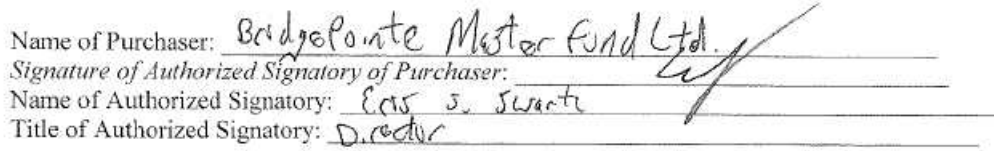 Name of Purchaser: BridgePointe Master Fund Ltd.
Signature of Authorized Signatory of Purchaser:
Name of Authorized Signatory: Eric S. Swartz
Title of Authorized Signatory: Director